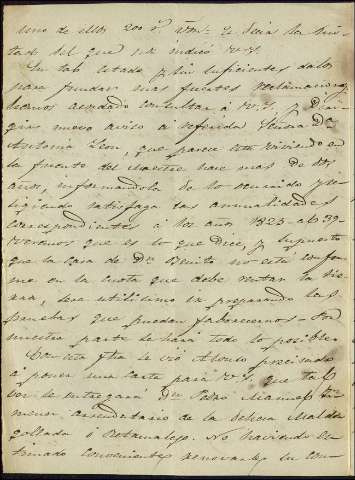 uno de ellos 200 r.s von. y seria la mi-
tad del que me indicó V. S.
En tal estado y sin suficientes datos
para fundar mas fuertes reclamaciones,
hemos acordado consultar á V. S. y di-
gir nuevo aviso á referida Señora D.a
Antonia Leon, que parece esta viviendo en
la fuente del Maestre hace mas de dos
años, informandola de lo ocurrido y
giendo satisfaga las annualidades
correspondientes á los años 1825 al 39
veremos que es lo que dice, y supuesto
que la casa de Dn. Benito no está confor-
me en la cuota que debe rentar la
será utilisimo ir preparando las
pruebas que puedan favorecernos. Por
nuestra parte se hará todo lo posible.
Con esta fha. se vió Alonso precisado
á poner una carta para V. S. que tal
vez le entregará Dn. Pedro
menor, arrendatario de la Dehesa Malde
gollada ó Retamalejo. No habiendo es-
timado conveniente renovarle su con-